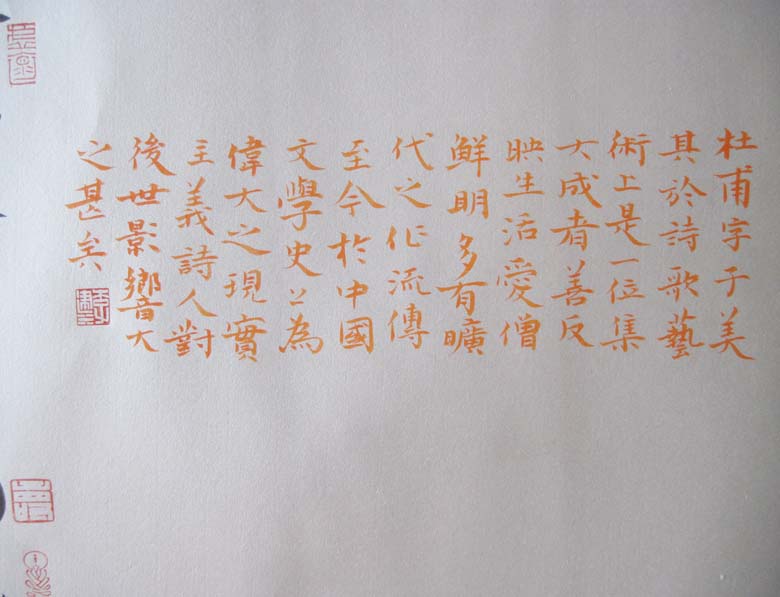 杜甫字子美
其於詩歌藝
術上是一位集
大成者善反
映生活愛僧
鮮明多有曠
代之作流傳
至今於中國
文學史公為
偉大之現實
主義詩人對
後世影響大
之甚矣